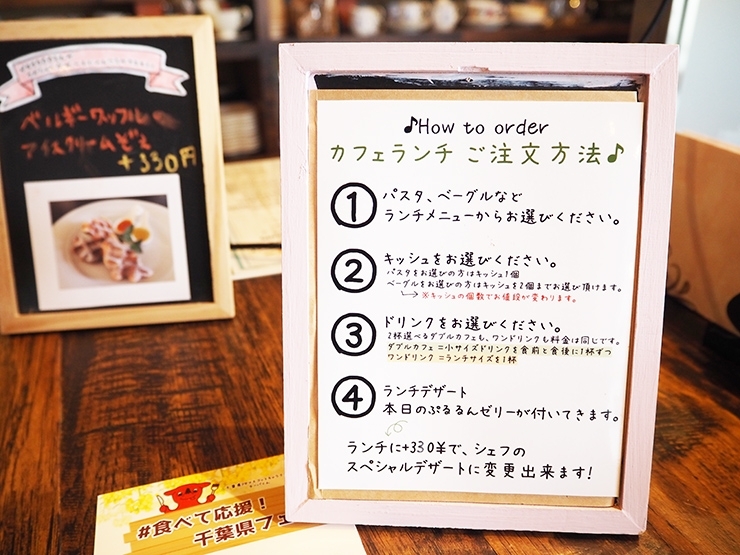 ベルギーワッフル
アイスクリームぞえ
+330円
♪How to order
カフェランチ ご注文方法♪
① パスタ、ベーグルなど
ランチメニューからお選びください。
② キッシュをお選びください。
パスタをお選びの方はキッシュ1個
ベーグルをお選びの方はキッシュを2個までお選び頂けます。
→ ※キッシュの個数でお値段が変わります。
③ ドリンクをお選びください。
2杯選べるダブルカフェも、ワンドリンクも料金は同じです。
ダブルカフェ=小サイズドリンクを食前と食後に1杯ずつ
ワンドリンク=ランチサイズを1杯
④ ランチデザート
本日のぷるるんゼリーが付いてきます。
ランチに+330¥で、シェフの
スペシャルデザートに変更出来ます!
#食べて応援!
千葉県フェ